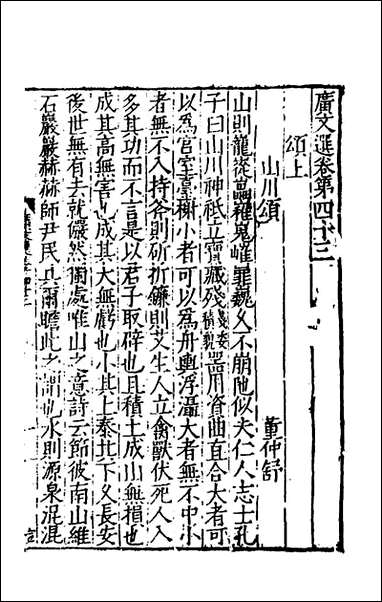 廣文選卷第四十三
頌上
山川頌
董仲舒
山則巃嵸嵓嶊嵬嶵巍久不崩阤似夫仁人志士孔
子曰山川神祇立寶藏殖器用資曲直合大者可
以為宮室臺榭小者可以為舟輿浮灄大者無不中小
者無不入持斧則斫折鐮則艾生人立禽獸伏死人入
多其功而不言是以君子取辟也且積土成山無損也
成其高無害也成其大無虧也小其上泰其下久長安
後世無有去就儼然獨處唯山之意詩云節彼南山維
石巖巖赫赫師尹民具爾瞻此之謂也水則源泉混混